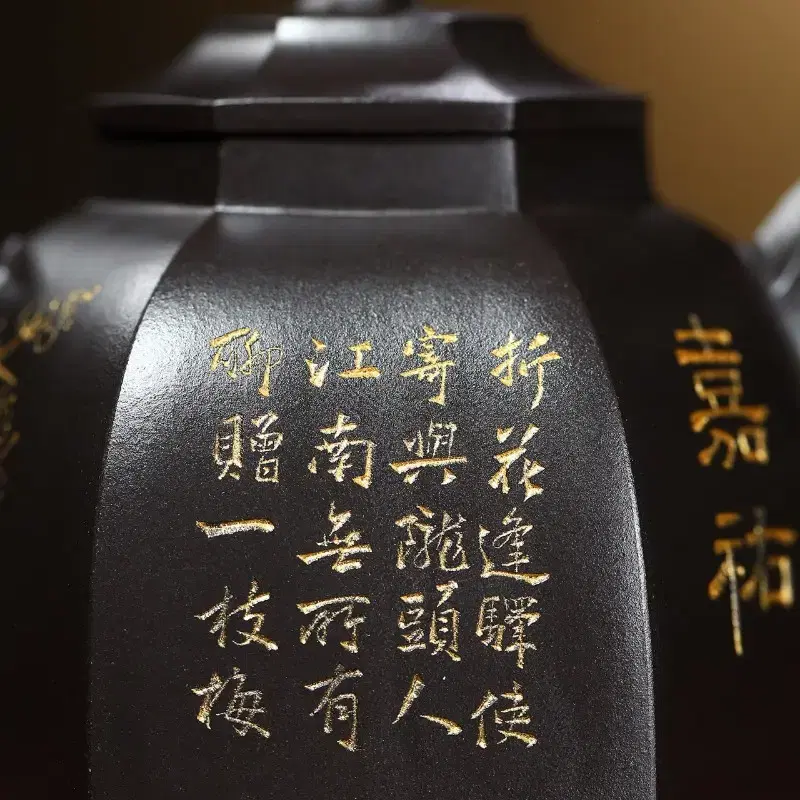 嘉祐
折花逢驛使
寄與隴頭人
江南無所有
聊贈一枝梅